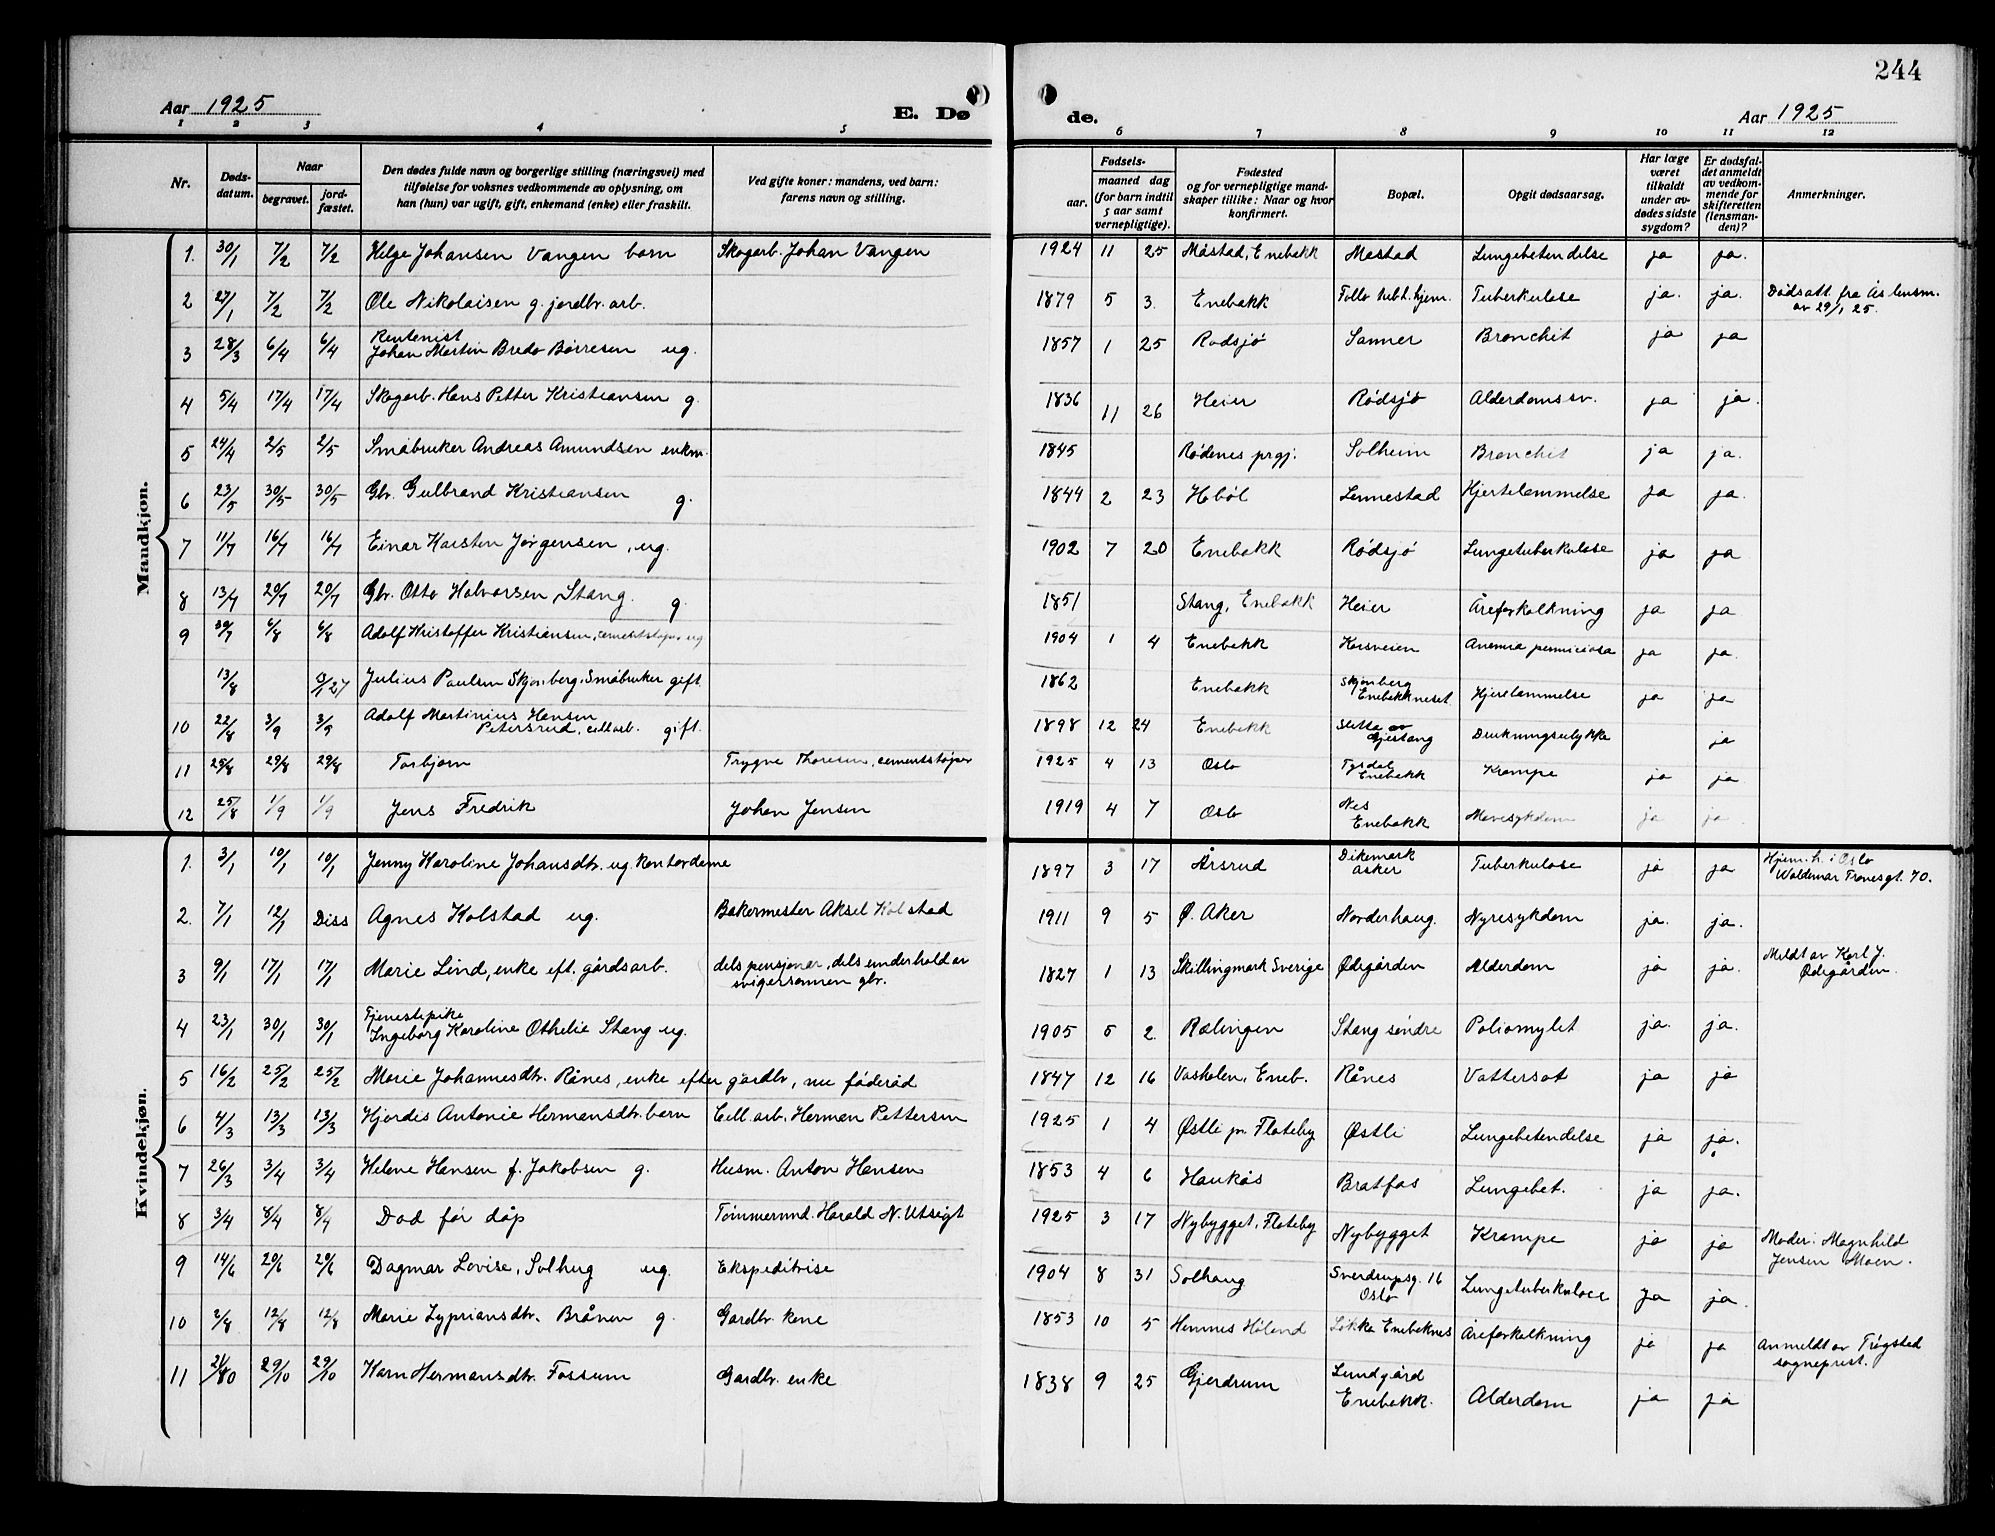 244
Aar 1925
E. Dø
de.
Aar 1925
1 2 3 4 5 6 7 8 9 10 11 12
Nr.
Døds-
datum.
Naar
begravet.
jord-
fæstet.
Den dødes fulde navn og borgerlige stilling (næringsvei) med
tilføielse for voksnes vedkommende av oplysning, om
han (hun) var ugift, gift, enkemand (enke) eller fraskilt.
Ved gifte koner: mandens, ved barn:
farens navn og stilling.
Fødsels-
aar.
maaned dag
(for barn indtil
5 aar samt
vernepligtige).
Fødested
og for vernepligtige mand-
skaper tillike: Naar og hvor
konfirmert.
Bopæl.
Opgit dødsaarsag.
Har læge
været
tilkaldt
under av-
dødes sidste
sygdom?
Er dødsfal-
det anmeldt
av vedkom-
mende for
skifteretten
(lensman-
den)?
Anmerkninger.
Mandkjøn.
1. 30/1 7/2 7/2 Helge Johansen Vangen barn Skogarb. Johan Vangen 1924 11 25 Måstad, Enebakk Mastad Lungebetendelse ja ja.
2 27/1 7/2 7/2 Ole Nikolaisen g. jordbr. arb. 1879 5 3. Enebakk Follo tub.t. hjem. Tuberkulose ja. ja. Dødsatt. fra Ås lensm.
av 29/1 25.
Rentenist
3 28/3 6/4 6/4 Johan Martin Bredo Børresen ug. 1857 1 25 Rødsjø Sanner Bronchit ja ja
4 5/4 17/4 17/4 Skogarb. Hans Petter Kristiansen g. 1836 11 26 Heier Rødsjø Alderdomssv. ja ja.
5 24/4 2/5 2/5 Småbruker Andreas Amundsen enkm. 1845 Rødenes prgj. Solheim Bronchit ja ja.
6 23/5 30/5 30/5 Gbr. Gulbrand Kristiansen g. 1844 2 23 Hobøl Lennestad Hjertelammelse ja ja.
7 11/7 16/7 16/7 Einar Karsten Jørgensen, ug. 1902 7 20 Enebakk Rødsjø Lungetuberkulose ja ja
8 13/7 20/7 20/7 Gbr. Otto Halvorsen Stang. g. 1851 Stang, Enebakk Heier Åreforkalkning ja ja
9 30/7 6/8 6/8 Adolf Kristoffer Kristiansen, cementstøper ug 1904 1 4 Enebakk Korsveien Anemia perniciosa ja ja.
13/8 Julius Paulsen Skjønberg, Småbruker gift. 1862 Enebakk Skjønberg
Enebakkneset Hjertelammelse ja ja
10 22/8 3/9 3/9 Adolf Martinius Hansen
Petersrud, cell.arb. gift. 1898 12 24 Enebakk Sletta av
Gjestang Drukningsulykke ja
11 25/8 29/8 29/8 Torbjørn Trygve Thoresen, cementstøper 1925 4 13 Oslo Tysdal
Enebakk Krampe ja ja
12 25/8 1/9 1/9 Jens Fredrik Johan Jensen 1919 4 7 Oslo Nes
Enebakk Mavesykdom ja ja.
Kvindekjøn.
1. 3/1 10/1 10/1 Jenny Karoline Johansdtr. ug. kontordame 1897 3 17 Årsrud Dikemark
Asker Tuberkulose ja ja Hjem.h. i Oslo
Waldemar Tranesgt. 70.
2. 7/1 12/1 Diss Agnes Kolstad ug. Bakermester Aksel Kolstad 1911 9 5 Ø. Aker Norderhaug. Nyresykdom ja. ja.
3 9/1 17/1 17/1 Marie Lind, enke eft. gårdsarb. dels pensjoner, dels underhold av
svigersønnen gbr. 1827 1 13 Skillingmark Sverige Ødegården Alderdom ja ja. Meldt av Karl J.
Ødegården.
Tjenestepike
4 23/1 30/1 30/1 Ingeborg Karoline Othelie Stang ug. 1905 5 2. Rælingen Stang søndre Poliomylet ja. ja.
5 16/2 25/2 25/2 Marie Johannesdtr. Rånes, enke efter gårdbr, nu føderåd 1847 12 16 Vasholen, Eneb. Rånes Vattersot ja ja
6 4/3 13/3 13/3 Hjørdis Antonie Hermansdtr. barn Cell.arb. Herman Pettersen 1925 1 4 Østli pr. Flateby Østli Lungebetendelse ja ja.
7 26/3 3/4 3/4 Helene Hansen f. Jakobsen g. Husm. Anton Hansen 1853 4 6 Haukås Bratfos Lungebet. ja ja.
8 3/4 8/4 8/4 Død før dåp Tømmermd. Harald N. Utsigt 1925 3 17 Nybygget, Flateby Nybygget Krampe ja ja Moder: Magnhild
Jensen Moen.
9 14/6 20/6 20/6 Dagmar Lovise, Solhug ug. Ekspeditrise 1904 8 31 Solhaug Sverdrupsg. 16
Oslo Lungetuberkulose ja ja.
10 2/8 12/8 12/8 Marie Zypriansdtr. Brånen g. Gardbr. kone 1853 10 5 Hemnes Høland Løkka Enebaknes Åreforkalkning ja ja Anmeldt av Trøgstad
sogneprest.
11 21/10 29/10 29/10 Karn Hermansdtr. Fossum Gardbr. enke 1838 9 25 Gjerdrum Lundgård
Enebakk. Alderdom ja ja